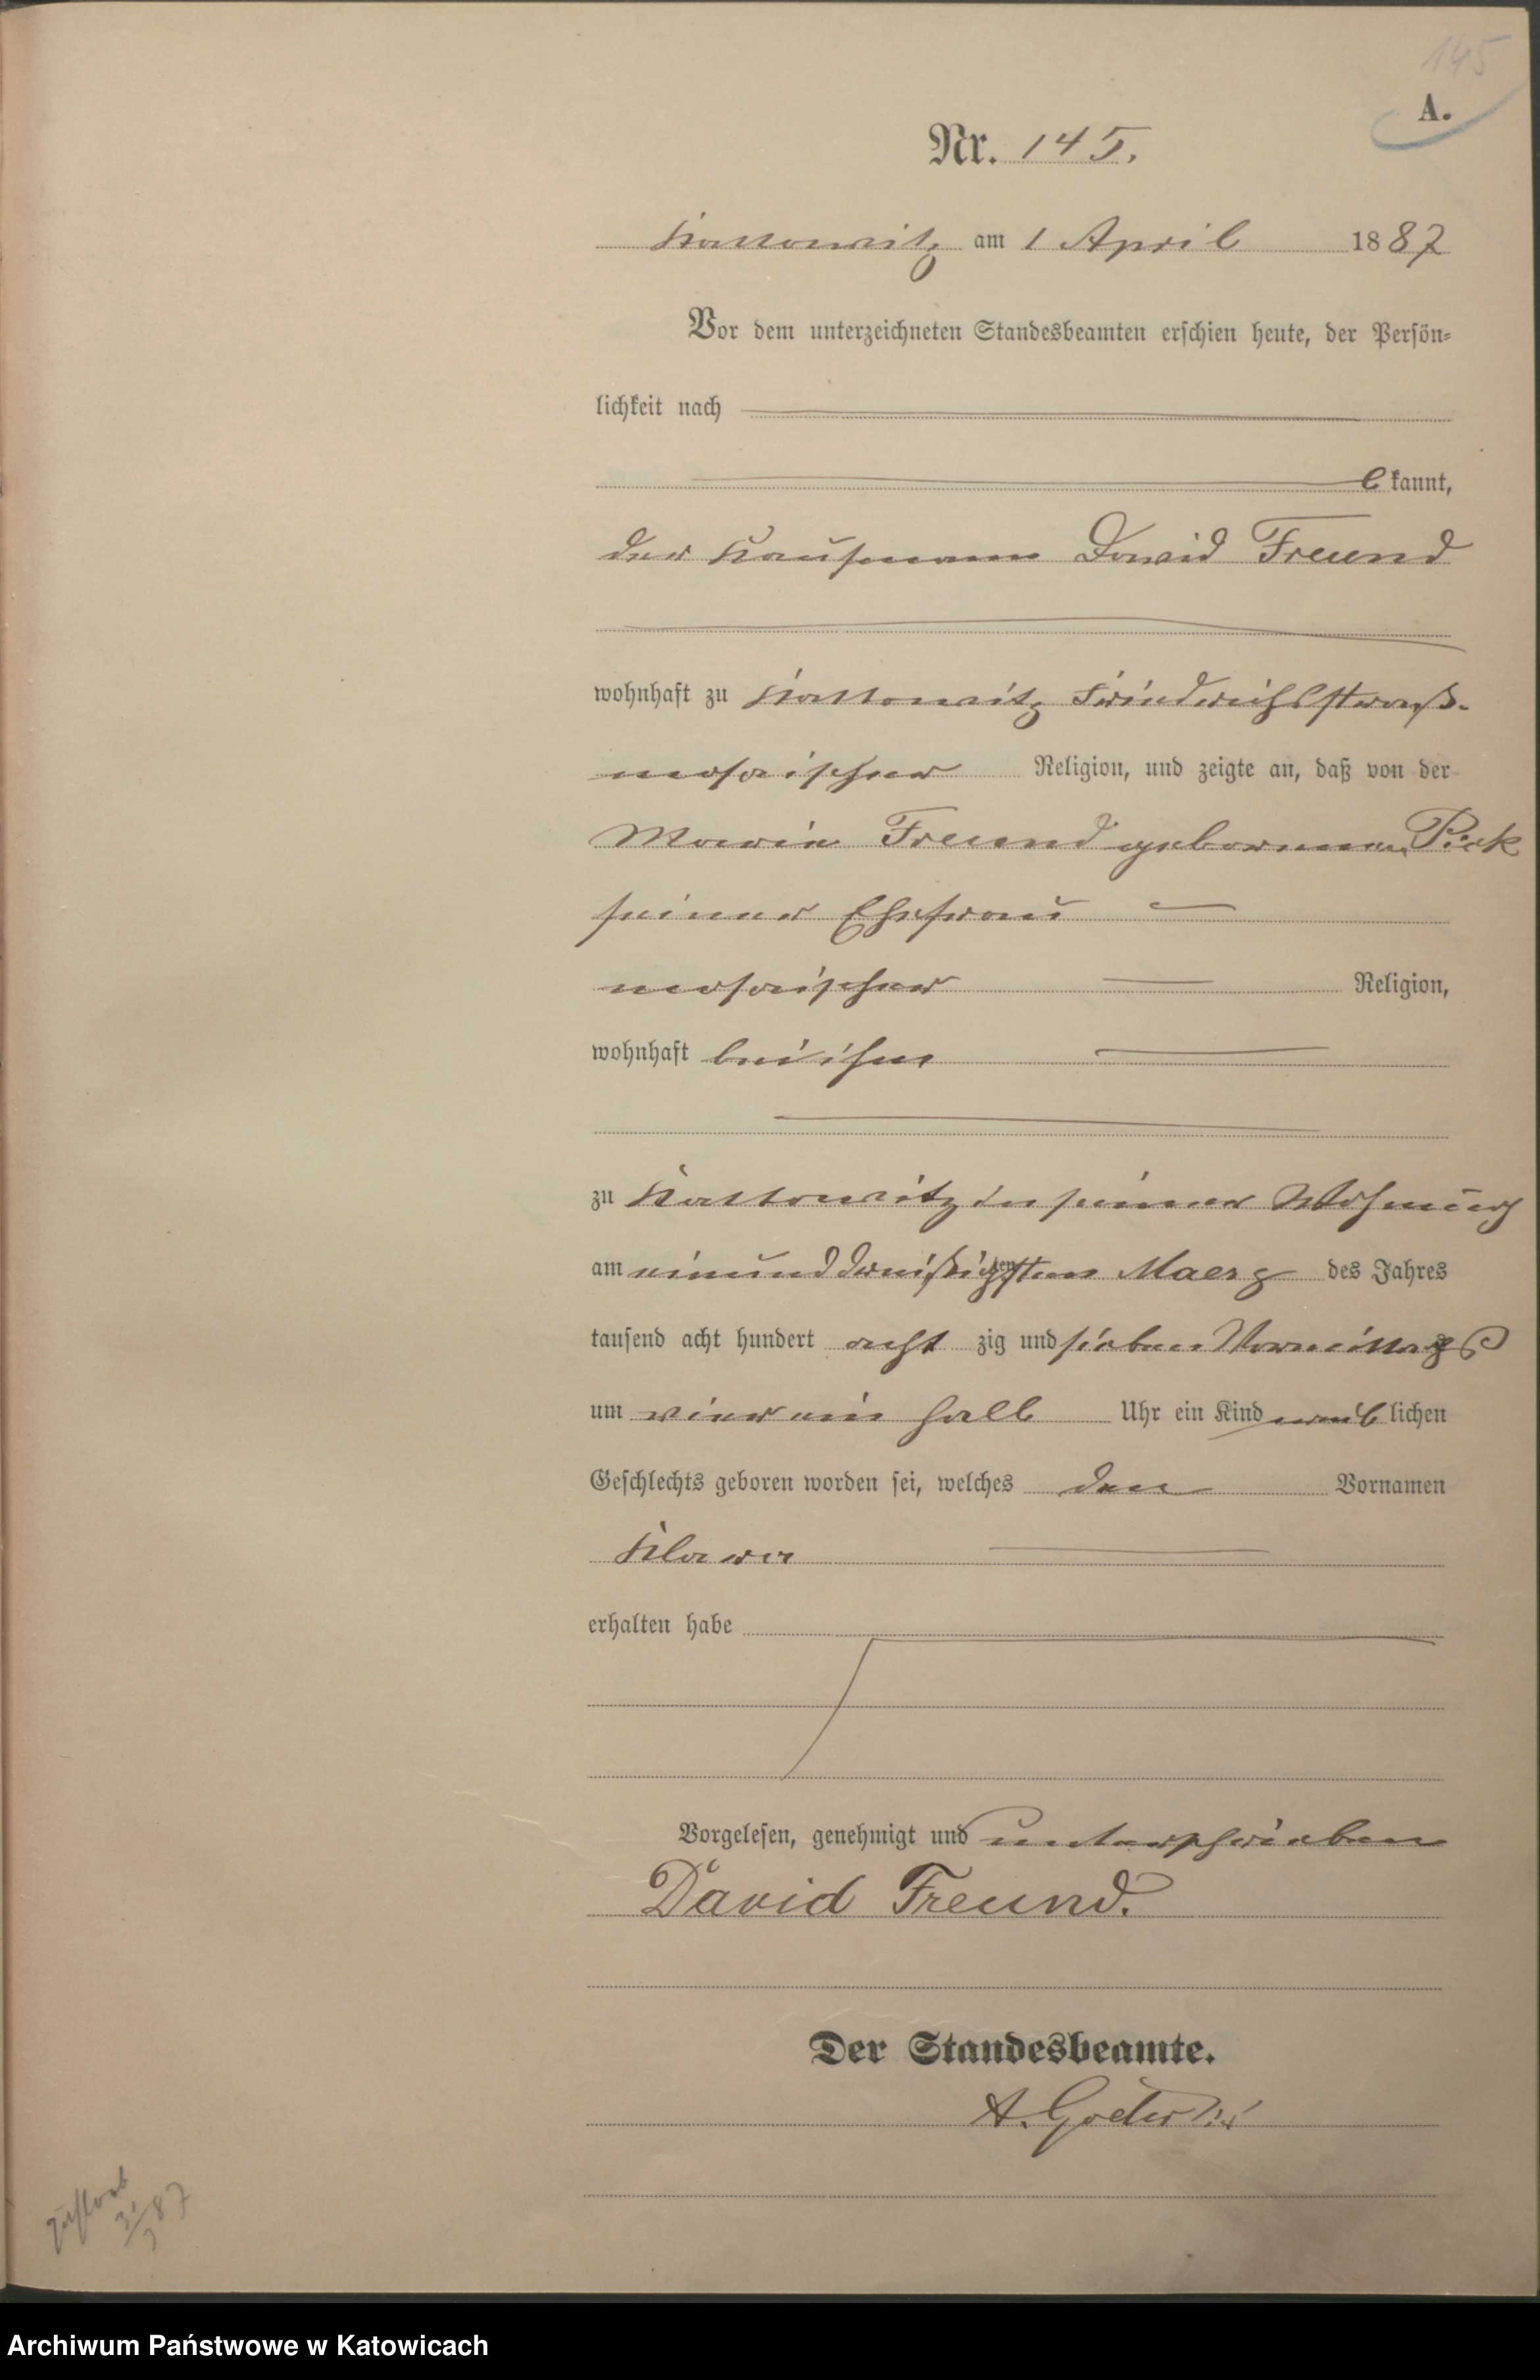 145
A.
Nr. 145.
Kattowitz am 1 April 1887
Vor dem unterzeichneten Standesbeamten erschien heute, der Persön-
lichkeit nach
bekannt,
der Kaufmann David Freund
wohnhaft zu Kattowitz Friedrichsstraß.
mosaischer Religion, und zeigte an, daß von der
Marie Freund geborenen Pick
seiner Ehefrau
mosaischer Religion,
wohnhaft bei ihm
zu Kattowitz in seiner Wohnung
am einunddreißigsten Maerz des Jahres
tausend acht hundert acht zig und sieben Vormittags
um vier ein halb Uhr ein Kind weiblichen
Geschlechts geboren worden sei, welches den Vornamen
Klara
erhalten habe
Vorgelesen, genehmigt und unterschrieben
David Freund.
Der Standesbeamte.
A.
87
Archiwum Państwowe w Katowicach